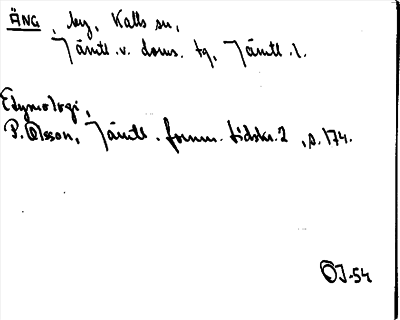 ÄNG, by, Kalls sn,
Jämtl. v. doms. tg, Jämtl. l.
Etymologi,
P. Olsson, Jämtl. fornm. tidskr. 2, s. 174.
ÖJ-54